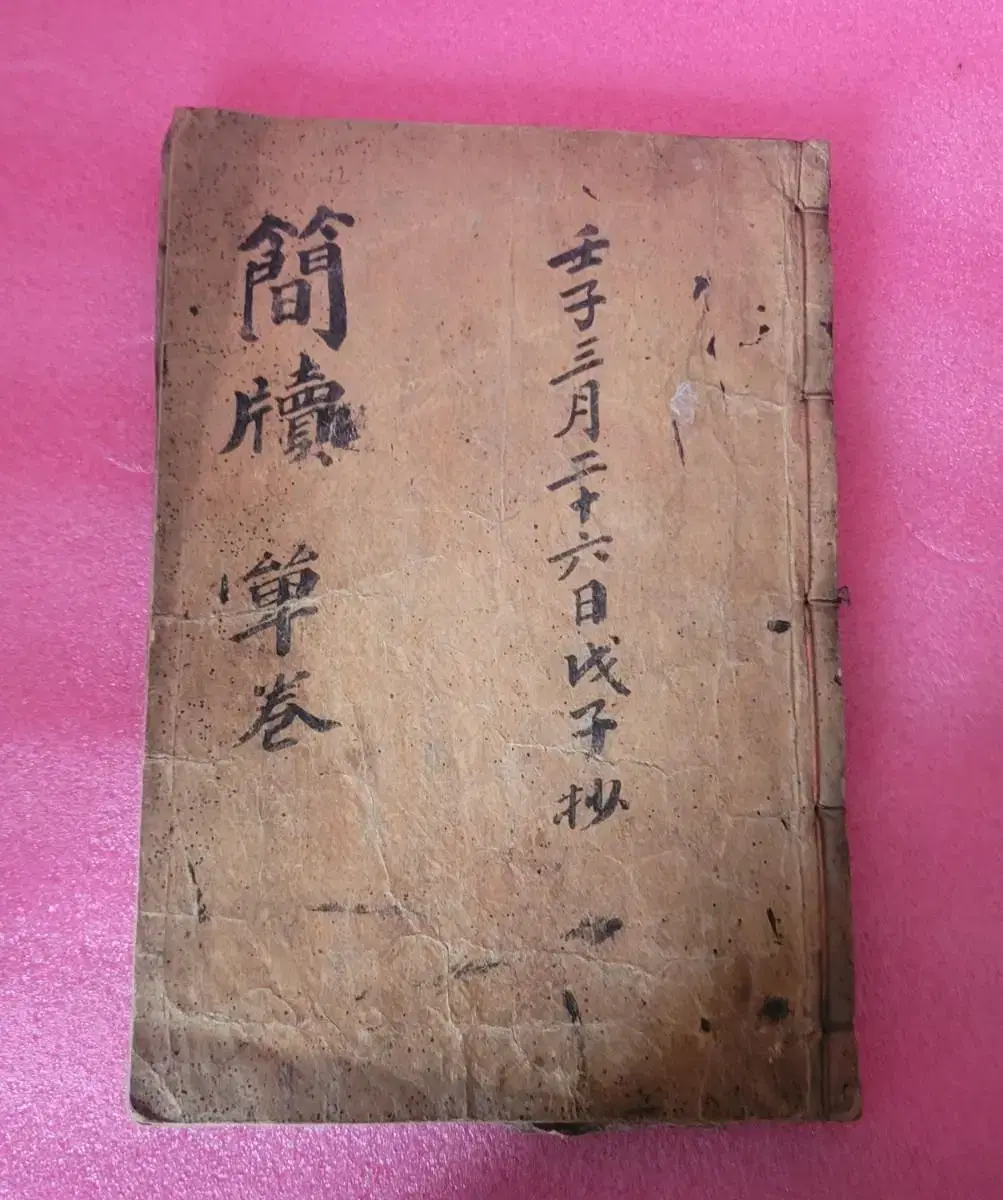 壬子三月二十六日戊子抄
簡牘 單卷